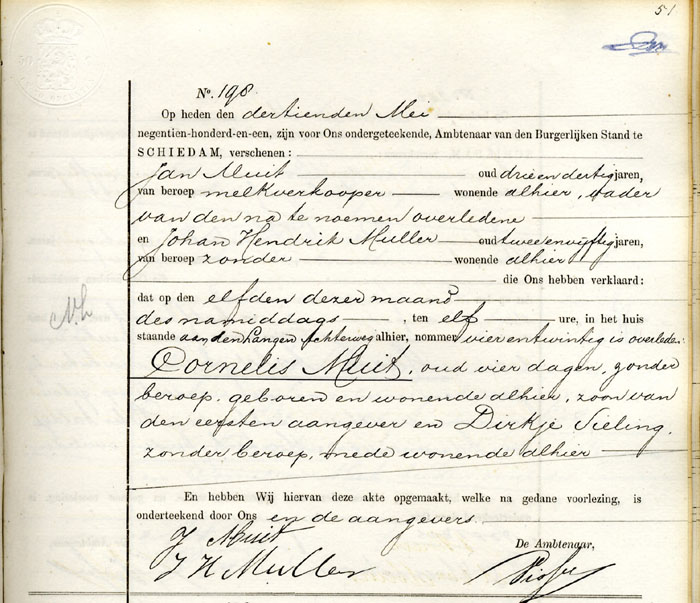 51
No. 198
Op heden den dertienden Mei
negentien-honderd-en-een, zijn voor Ons ondergeteekende, Ambtenaar van den Burgerlijken Stand te
SCHIEDAM, verschenen:
Jan Muit oud drieendertig jaren,
van beroep melkverkooper wonende alhier, vader
van den na te noemen overledene
en Johan Hendrik Muller oud tweeenvijftig jaren,
van beroep zonder wonende alhier
die Ons hebben verklaard:
dat op den elfden dezer maand
des namiddags, ten elf ure, in het huis
staande aan den Langen Achterweg alhier, nommer vierentwintig is overleden:
Cornelis Muit, oud vier dagen, zonder
beroep, geboren en wonende alhier, zoon van
den eersten aangever en Dirkje Sieling,
zonder beroep, mede wonende alhier
En hebben Wij hiervan deze akte opgemaakt, welke na gedane voorlezing, is
onderteekend door Ons en de aangevers.
J Muit
De Ambtenaar,
J H Muller